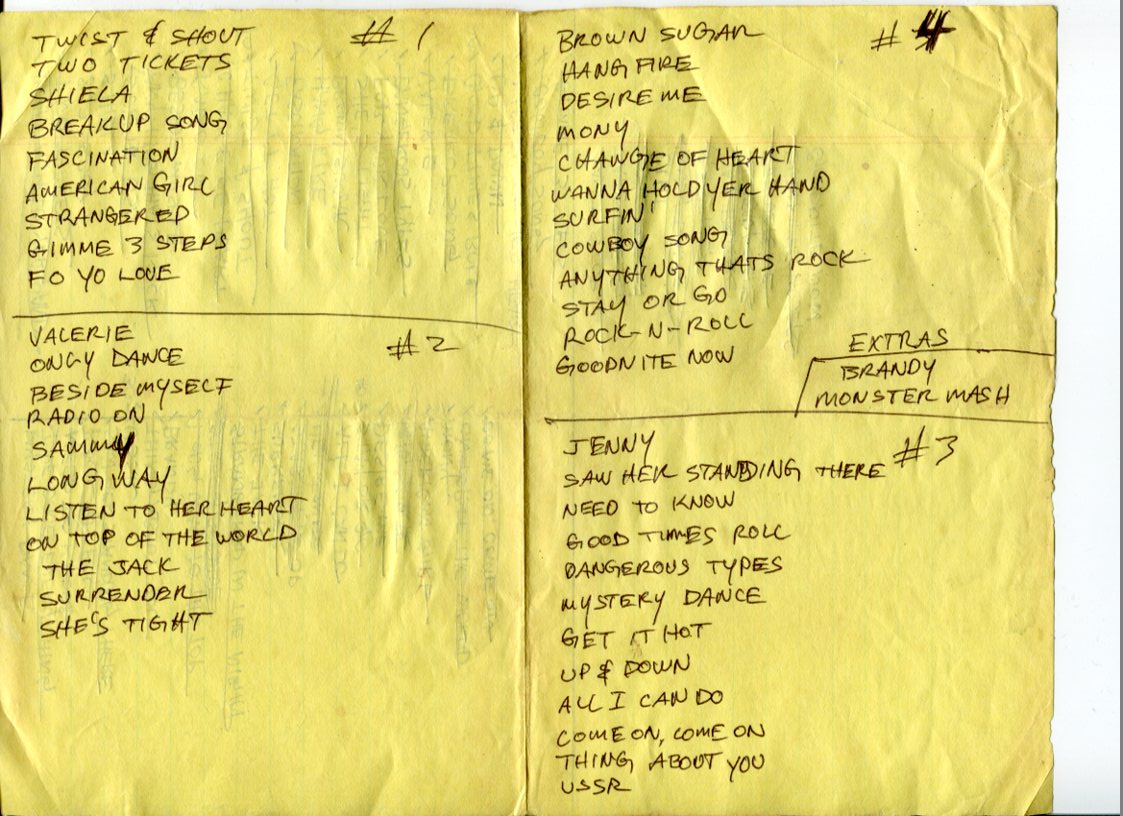 TWIST & SHOUT # 1
TWO TICKETS
SHIELA
BREAKUP SONG
FASCINATION
AMERICAN GIRL
STRANGERED
GIMME 3 STEPS
FO YO LOVE
VALERIE
# 2
ONGY DANCE
BESIDE MYSELF
RADIO ON
SAMMY
LONG WAY
LISTEN TO HER HEART
ON TOP OF THE WORLD
THE JACK
SURRENDER
SHE'S TIGHT
BROWN SUGAR # 4
HANG FIRE
DESIRE ME
MONY
CHANGE OF HEART
WANNA HOLD YER HAND
SURFIN'
COWBOY SONG
ANYTHING THATS ROCK
STAY OR GO
ROCK-N-ROLL
GOODNITE NOW
EXTRAS
BRANDY
MONSTER MASH
JENNY
#3
SAW HER STANDING THERE
NEED TO KNOW
GOOD TIMES ROLL
DANGEROUS TYPES
MYSTERY DANCE
GET IT HOT
UP & DOWN
ALL I CAN DO
COME ON, COME ON
THING ABOUT YOU
USSR